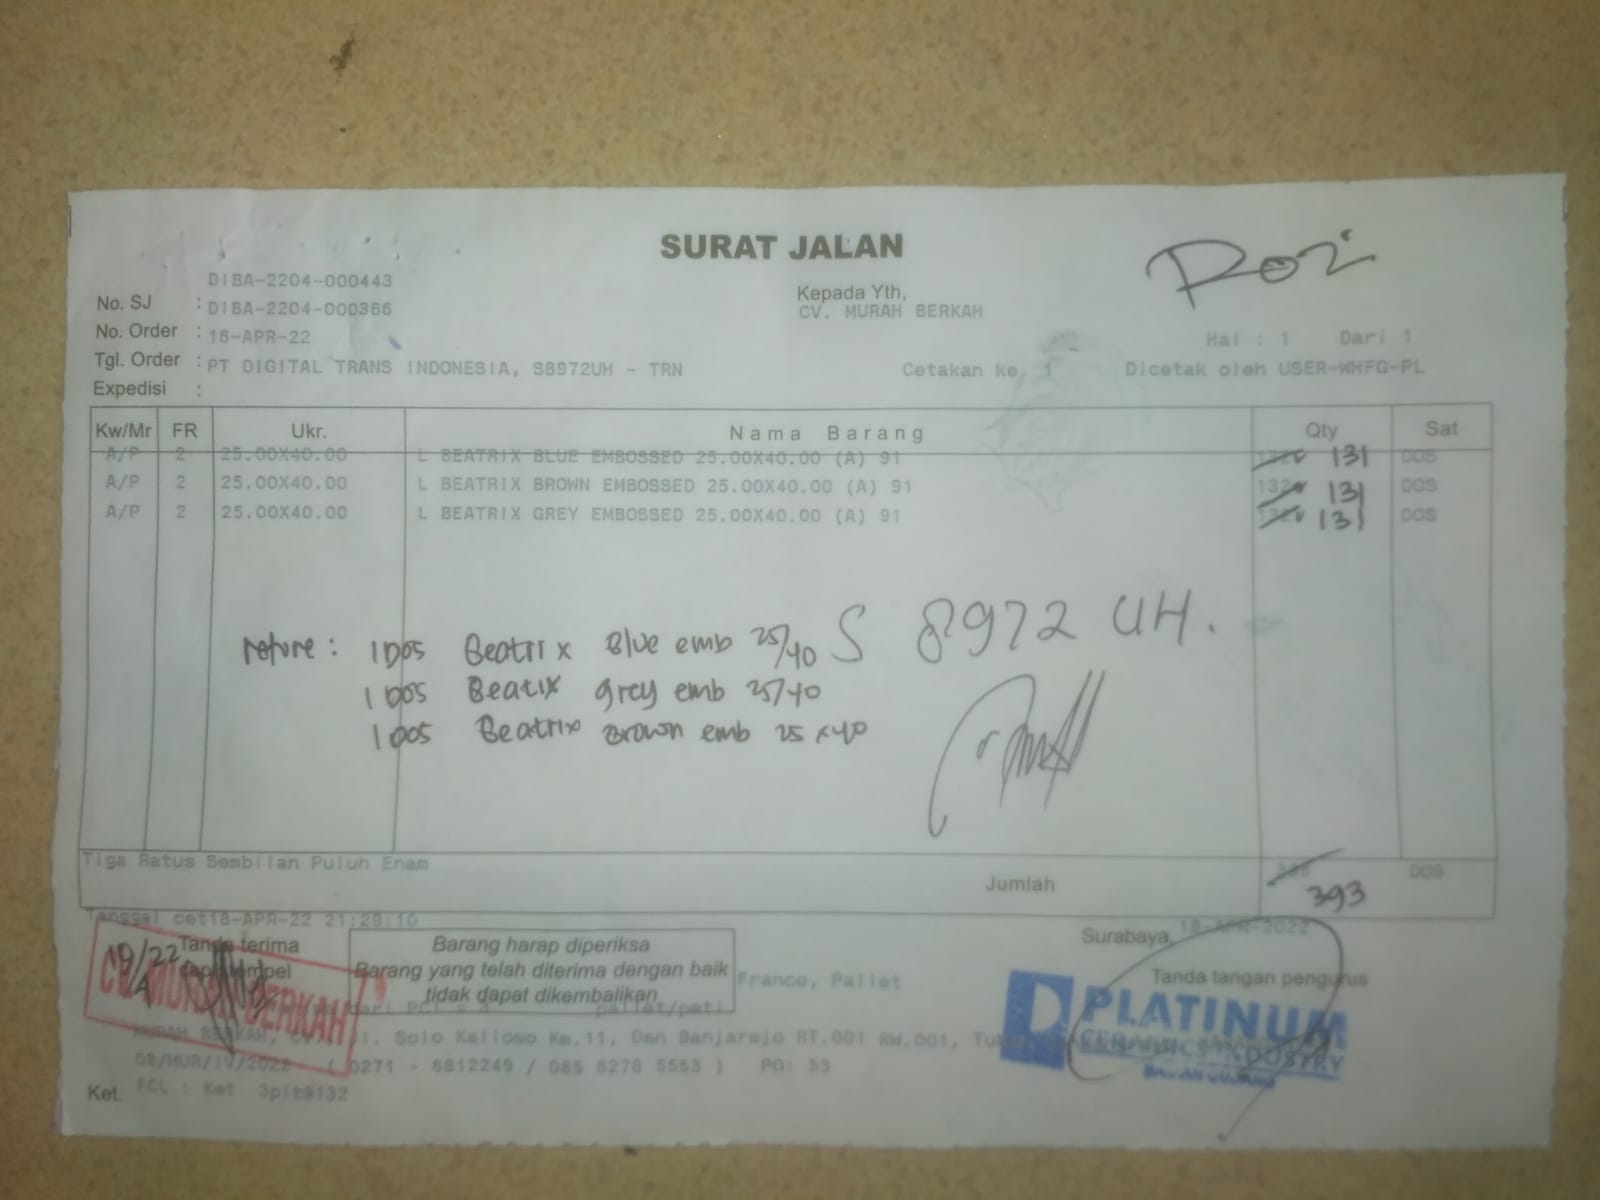 SURAT JALAN
Rozi
DIBA-2204-000443
No. SJ : DIBA-2204-000366
No. Order : 16-APR-22
Tgl. Order : PT DIGITAL TRANS INDONESIA, S8972UH - TRN
Expedisi :
Kepada Yth,
CV. MURAH BERKAH
Hal : 1 Dari 1
Cetakan ke 1 Dicetak oleh USER-WHFG-PL
Kw/Mr FR Ukr. Nama Barang Qty Sat
A/P 2 25.00X40.00 L BEATRIX BLUE EMBOSSED 25.00X40.00 (A) 91 132 131 DOS
A/P 2 25.00X40.00 L BEATRIX BROWN EMBOSSED 25.00X40.00 (A) 91 132 131 DOS
A/P 2 25.00X40.00 L BEATRIX GREY EMBOSSED 25.00X40.00 (A) 91 132 131 DOS
S 8972 UH.
reture : 1 DOS Beatrix Blue emb 25/40
1 DOS Beatix grey emb 25/40
1 DOS Beatrix Brown emb 25 x 40
Tiga Ratus Sembilan Puluh Enam
Jumlah 396 393 DOS
Tanggal cet18-APR-22 21:29:10
Surabaya, 18-APR-2022
Tanda terima
19/22
CV. MURAH BERKAH
Barang harap diperiksa
Barang yang telah diterima dengan baik
tidak dapat dikembalikan
Franco, Pallet
pallet/peti
Tanda tangan pengurus
PLATINUM
CERAMICS INDUSTRY
MURAH BERKAH, Jl. Solo Kalioso Km.11, Dsn Banjarejo RT.001 RW.001,
08/MUR/IV/2022 ( 0271 - 6812249 / 085 6278 5553 ) PG: 53
Ket. FCL : Ket 3plt@132